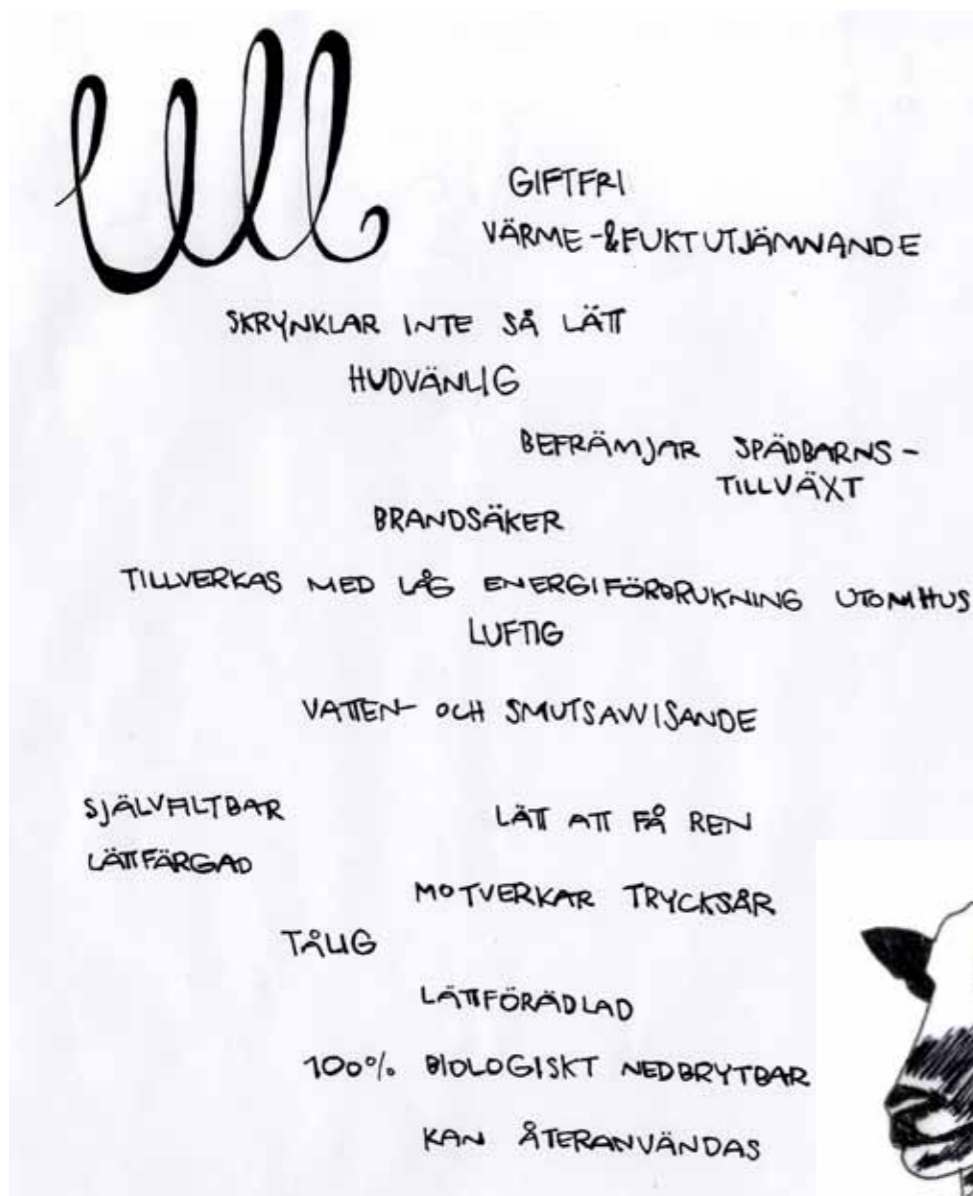 Ull
GIFTFRI
VÄRME-&FUKTUTJÄMNANDE
SKRYNKLAR INTE SÅ LÄTT
HUDVÄNLIG
BEFRÄMJAR SPÄDBARNS-
TILLVÄXT
BRANDSÄKER
TILLVERKAS MED LÅG ENERGIFÖRBRUKNING UTOMHUS
LUFTIG
VATTEN- OCH SMUTSAVVISANDE
SJÄLVFILTBAR
LÄTT ATT FÅ REN
LÄTTFÄRGAD
MOTVERKAR TRYCKSÅR
TÅLIG
LÄTTFÖRÄDLAD
100% BIOLOGISKT NEDBRYTBAR
KAN ÅTERANVÄNDAS